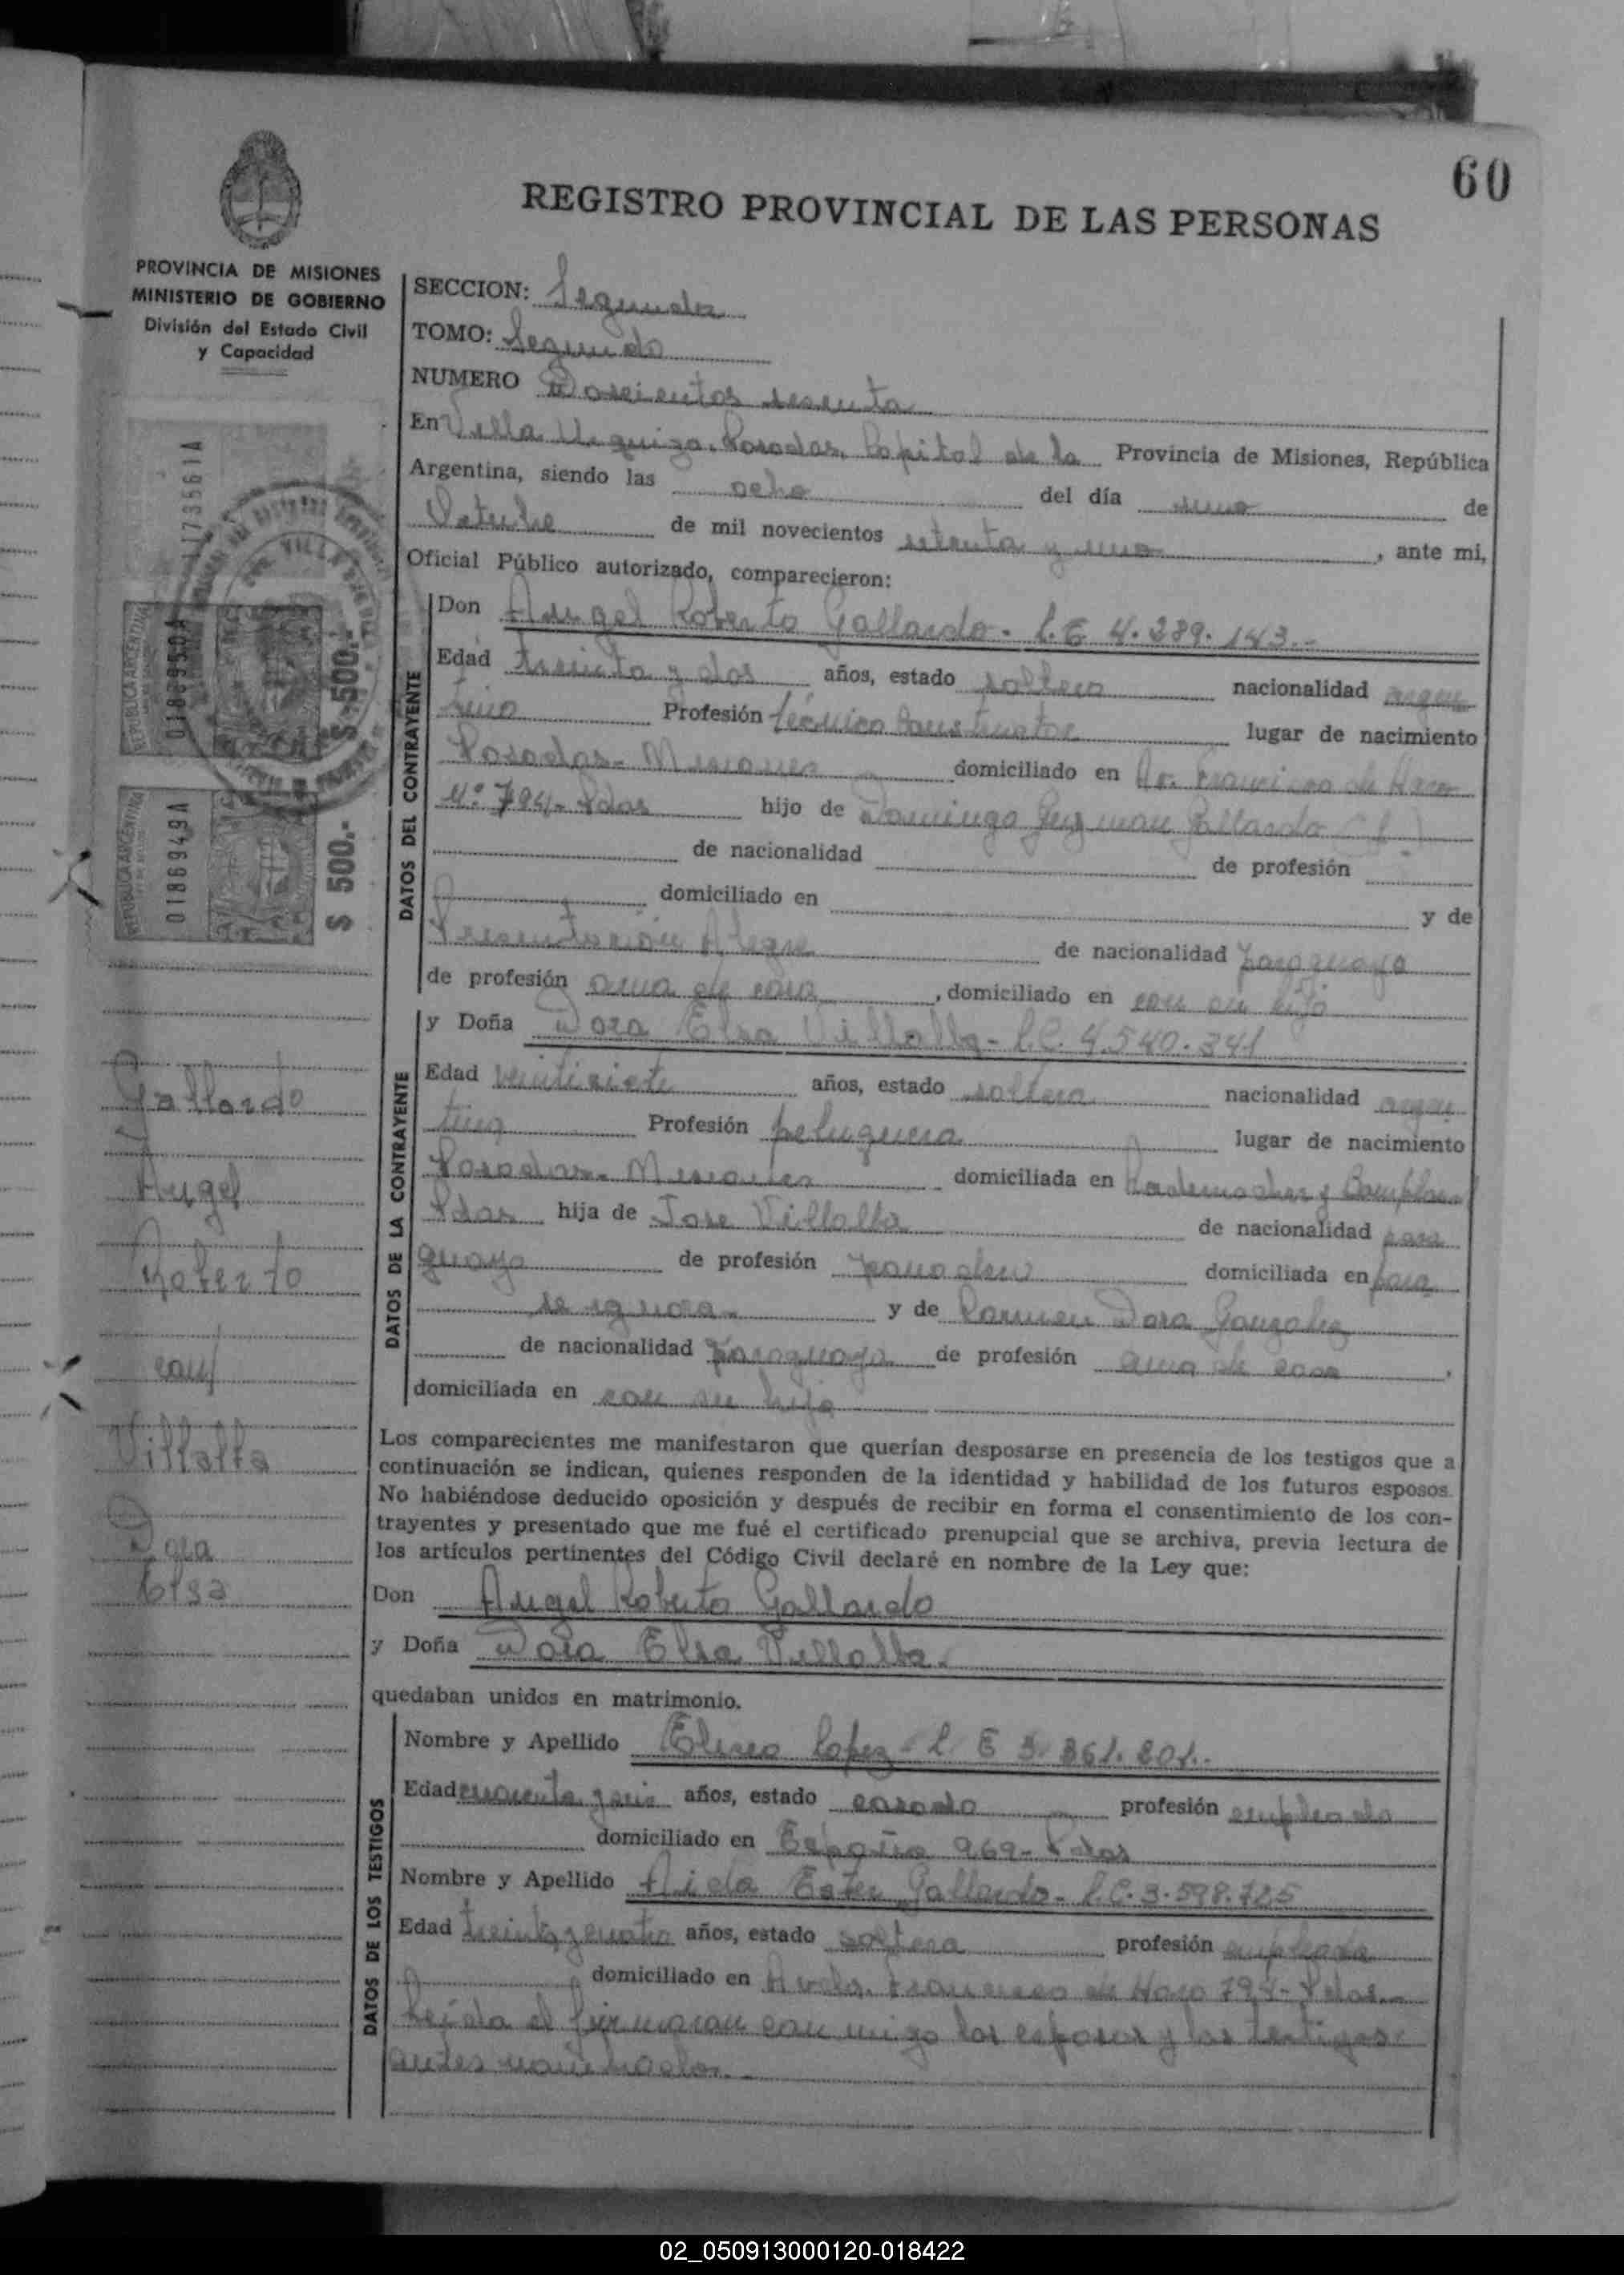 60
REGISTRO PROVINCIAL DE LAS PERSONAS
PROVINCIA DE MISIONES
MINISTERIO DE GOBIERNO
División del Estado Civil
y Capacidad
SECCION: Segunda
TOMO: Segundo
NUMERO Doscientos sesenta
En Villa Urquiza, Posadas, Capital de la Provincia de Misiones, República
Argentina, siendo las ocho del día uno de
Octubre de mil novecientos setenta y uno, ante mi,
Oficial Público autorizado, comparecieron:
DATOS DEL CONTRAYENTE
Don Angel Roberto Gallardo - L.E 4.289.143.-
Edad treinta y dos años, estado soltero nacionalidad argen
tino Profesión técnico constructor lugar de nacimiento
Posadas - Misiones domiciliado en Av. Francisco de Haro
Nº 794 - Pdas hijo de Domingo Guzman Gallardo
de nacionalidad de profesión
domiciliado en y de
Presentación Alegre de nacionalidad paraguaya
de profesión ama de casa, domiciliado en con su hijo
DATOS DE LA CONTRAYENTE
y Doña Dora Elsa Villalba - L.C. 4.540.341
Edad veintisiete años, estado soltera nacionalidad argen
tina Profesión peluquera lugar de nacimiento
Posadas - Misiones domiciliada en Rademacher y
Pdas hija de Jose Villalba de nacionalidad para
guayo de profesión panadero domiciliada en
se ignora y de Carmen Dora Gonzalez
de nacionalidad paraguaya de profesión ama de casa,
domiciliada en con su hija
Los comparecientes me manifestaron que querían desposarse en presencia de los testigos que a
continuación se indican, quienes responden de la identidad y habilidad de los futuros esposos.
No habiéndose deducido oposición y después de recibir en forma el consentimiento de los con-
trayentes y presentado que me fué el certificado prenupcial que se archiva, previa lectura de
los artículos pertinentes del Código Civil declaré en nombre de la Ley que:
Don Angel Roberto Gallardo
y Doña Dora Elsa Villalba.
quedaban unidos en matrimonio.
DATOS DE LOS TESTIGOS
Nombre y Apellido Eliseo Lopez - L E 3.361.201.-
Edad cuarenta y seis años, estado casado profesión empleado
domiciliado en España 969 - Pdas
Nombre y Apellido Aida Ester Gallardo - L.C. 3.598.725
Edad treinta y cuatro años, estado soltera profesión empleada
domiciliado en Avda. Francisco de Haro 794 - Pdas.-
Leída el firmaran con migo los esposos y los testigos
antes nombrados.
1173561A
REPUBLICA ARGENTINA
0186950A
$ 500.-
REPUBLICA ARGENTINA
0186949A
$ 500.-
Gallardo
Angel
Roberto
con/
Villalba
Dora
Elsa
02_050913000120-018422